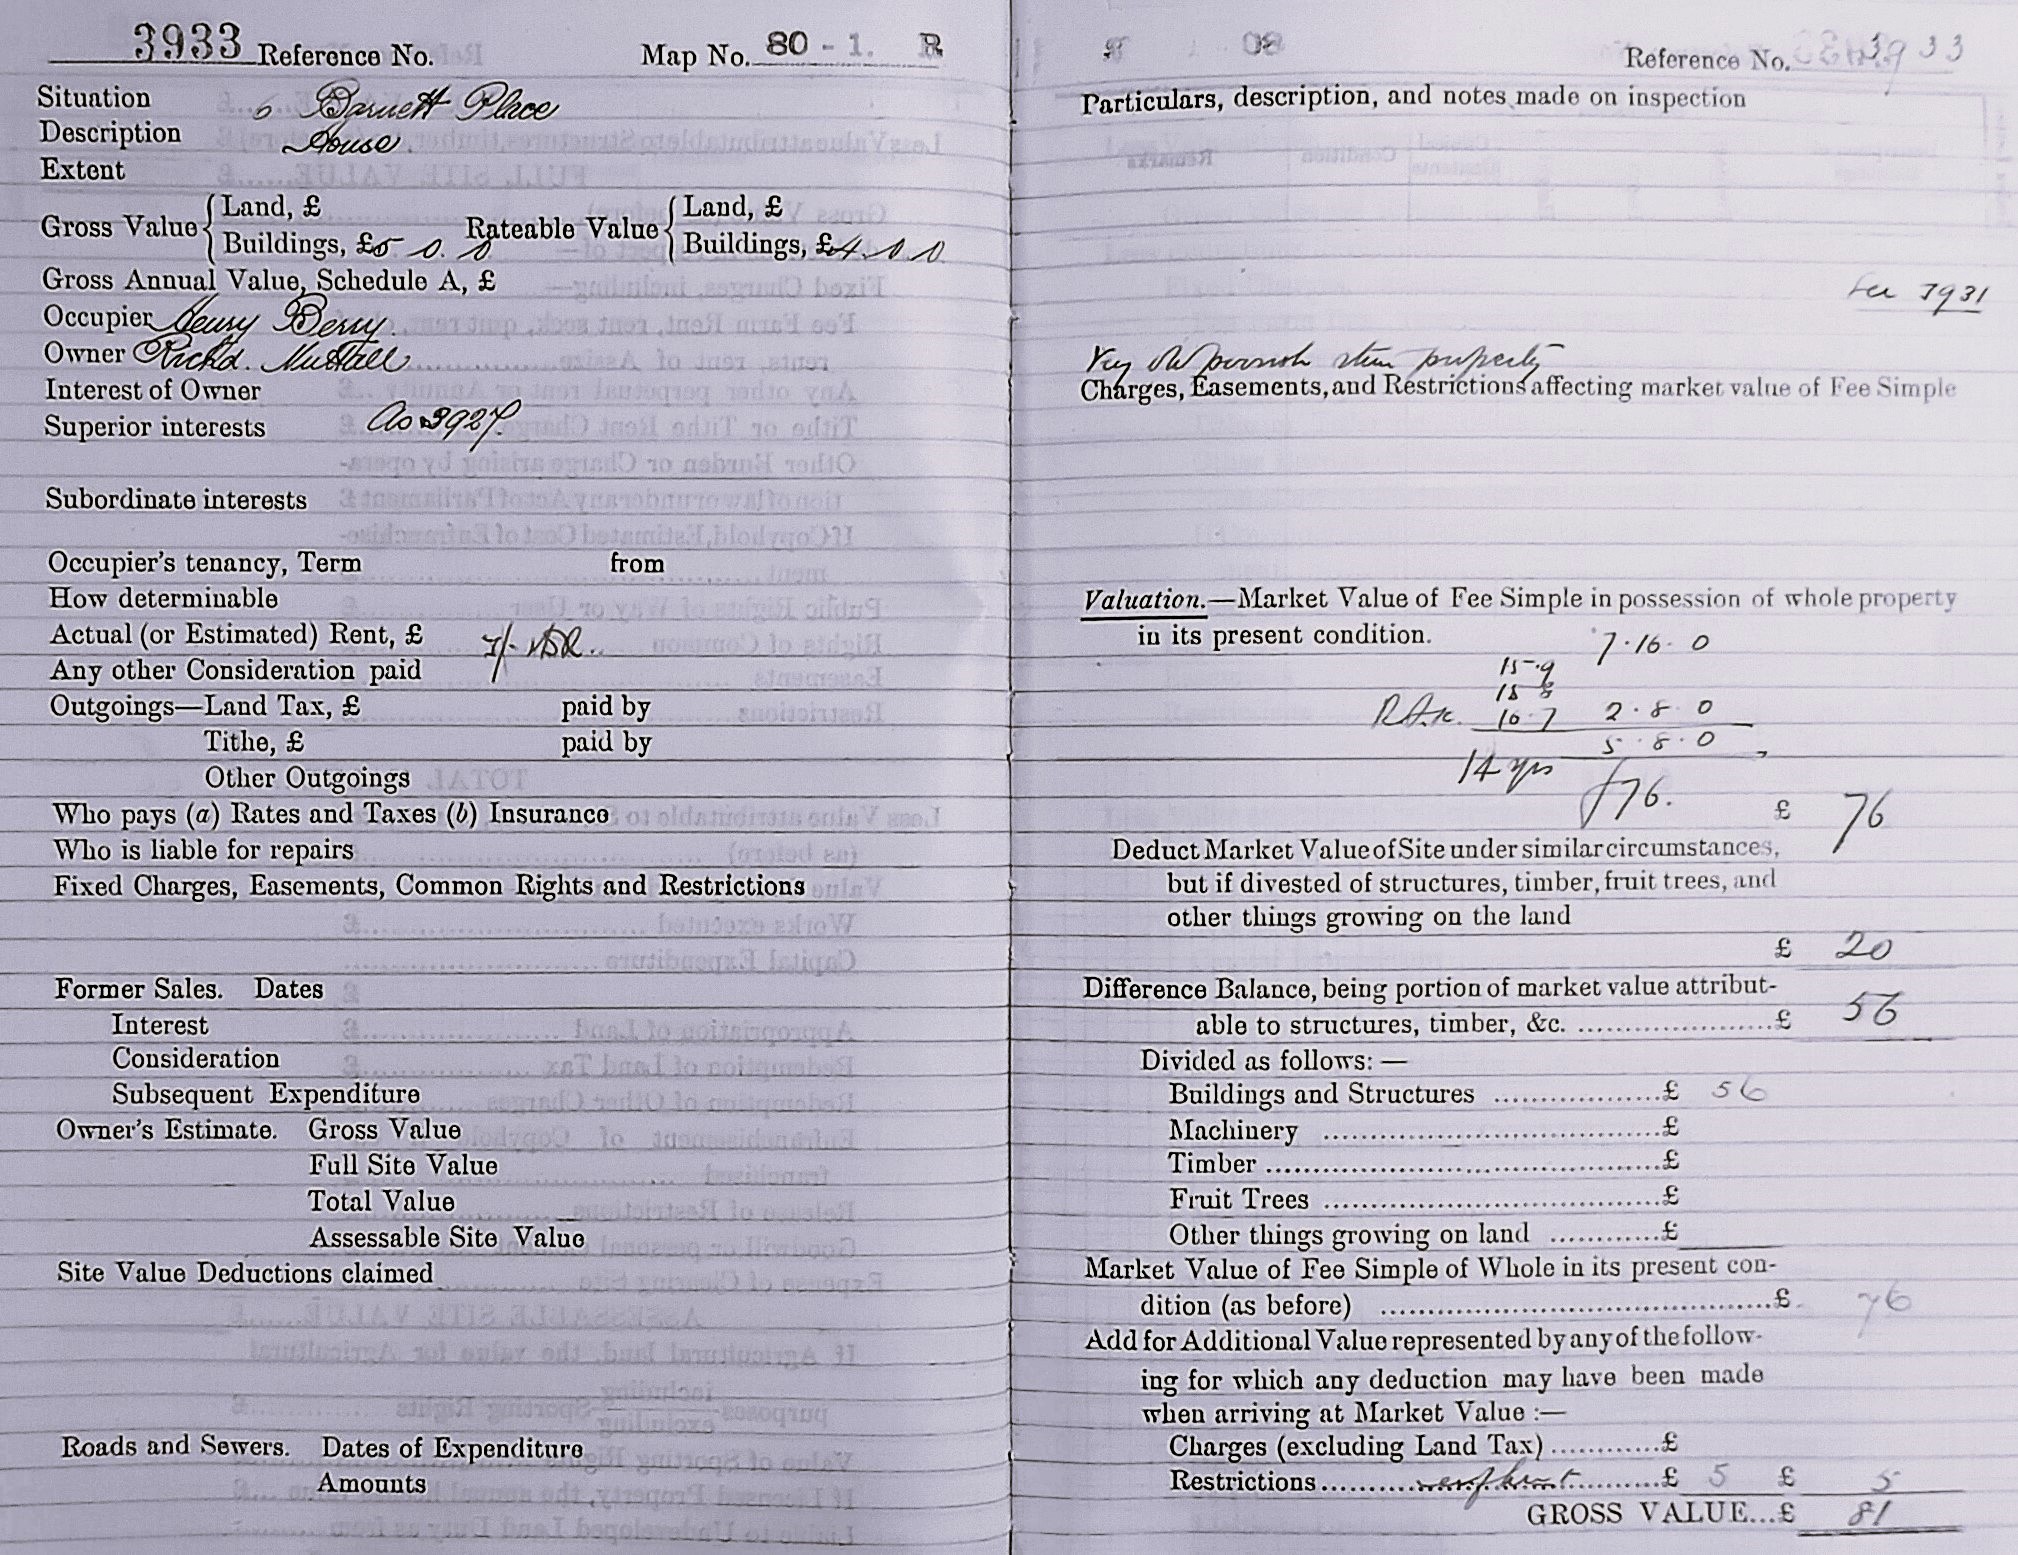 3933 Reference No. Map No. 80 - 1. R
Situation 6 Barnett Place
Description House.
Extent
Gross Value { Land, £ Rateable Value { Land, £
Buildings, £5. 0. 0 Buildings, £4. 0. 0
Gross Annual Value, Schedule A, £
Occupier Henry Berry.
Owner Richd.
Interest of Owner
Superior interests As 3927.
Subordinate interests
Occupier's tenancy, Term from
How determinable
Actual (or Estimated) Rent, £
Any other Consideration paid
Outgoings—Land Tax, £ paid by
Tithe, £ paid by
Other Outgoings
Who pays (a) Rates and Taxes (b) Insurance
Who is liable for repairs
Fixed Charges, Easements, Common Rights and Restrictions
Former Sales. Dates
Interest
Consideration
Subsequent Expenditure
Owner's Estimate. Gross Value
Full Site Value
Total Value
Assessable Site Value
Site Value Deductions claimed
Roads and Sewers. Dates of Expenditure
Amounts
Reference No. 3933
Particulars, description, and notes made on inspection
3931
Very old property
Charges, Easements, and Restrictions affecting market value of Fee Simple
Valuation.—Market Value of Fee Simple in possession of whole property
in its present condition.
7. 16. 0
15-9
18 8
10-7 2. 8. 0
5. 8. 0
14 yrs £76.
£ 76
Deduct Market Value of Site under similar circumstances,
but if divested of structures, timber, fruit trees, and
other things growing on the land
£ 20
Difference Balance, being portion of market value attribut-
able to structures, timber, &c. ........................£ 56
Divided as follows: —
Buildings and Structures ..................£ 56
Machinery ....................................£
Timber ..........................................£
Fruit Trees ....................................£
Other things growing on land ............£
Market Value of Fee Simple of Whole in its present con-
dition (as before) ..........................................£ 76
Add for Additional Value represented by any of the follow-
ing for which any deduction may have been made
when arriving at Market Value :—
Charges (excluding Land Tax) ............£
Restrictions ....................£ 5 £ 5
GROSS VALUE...£ 81